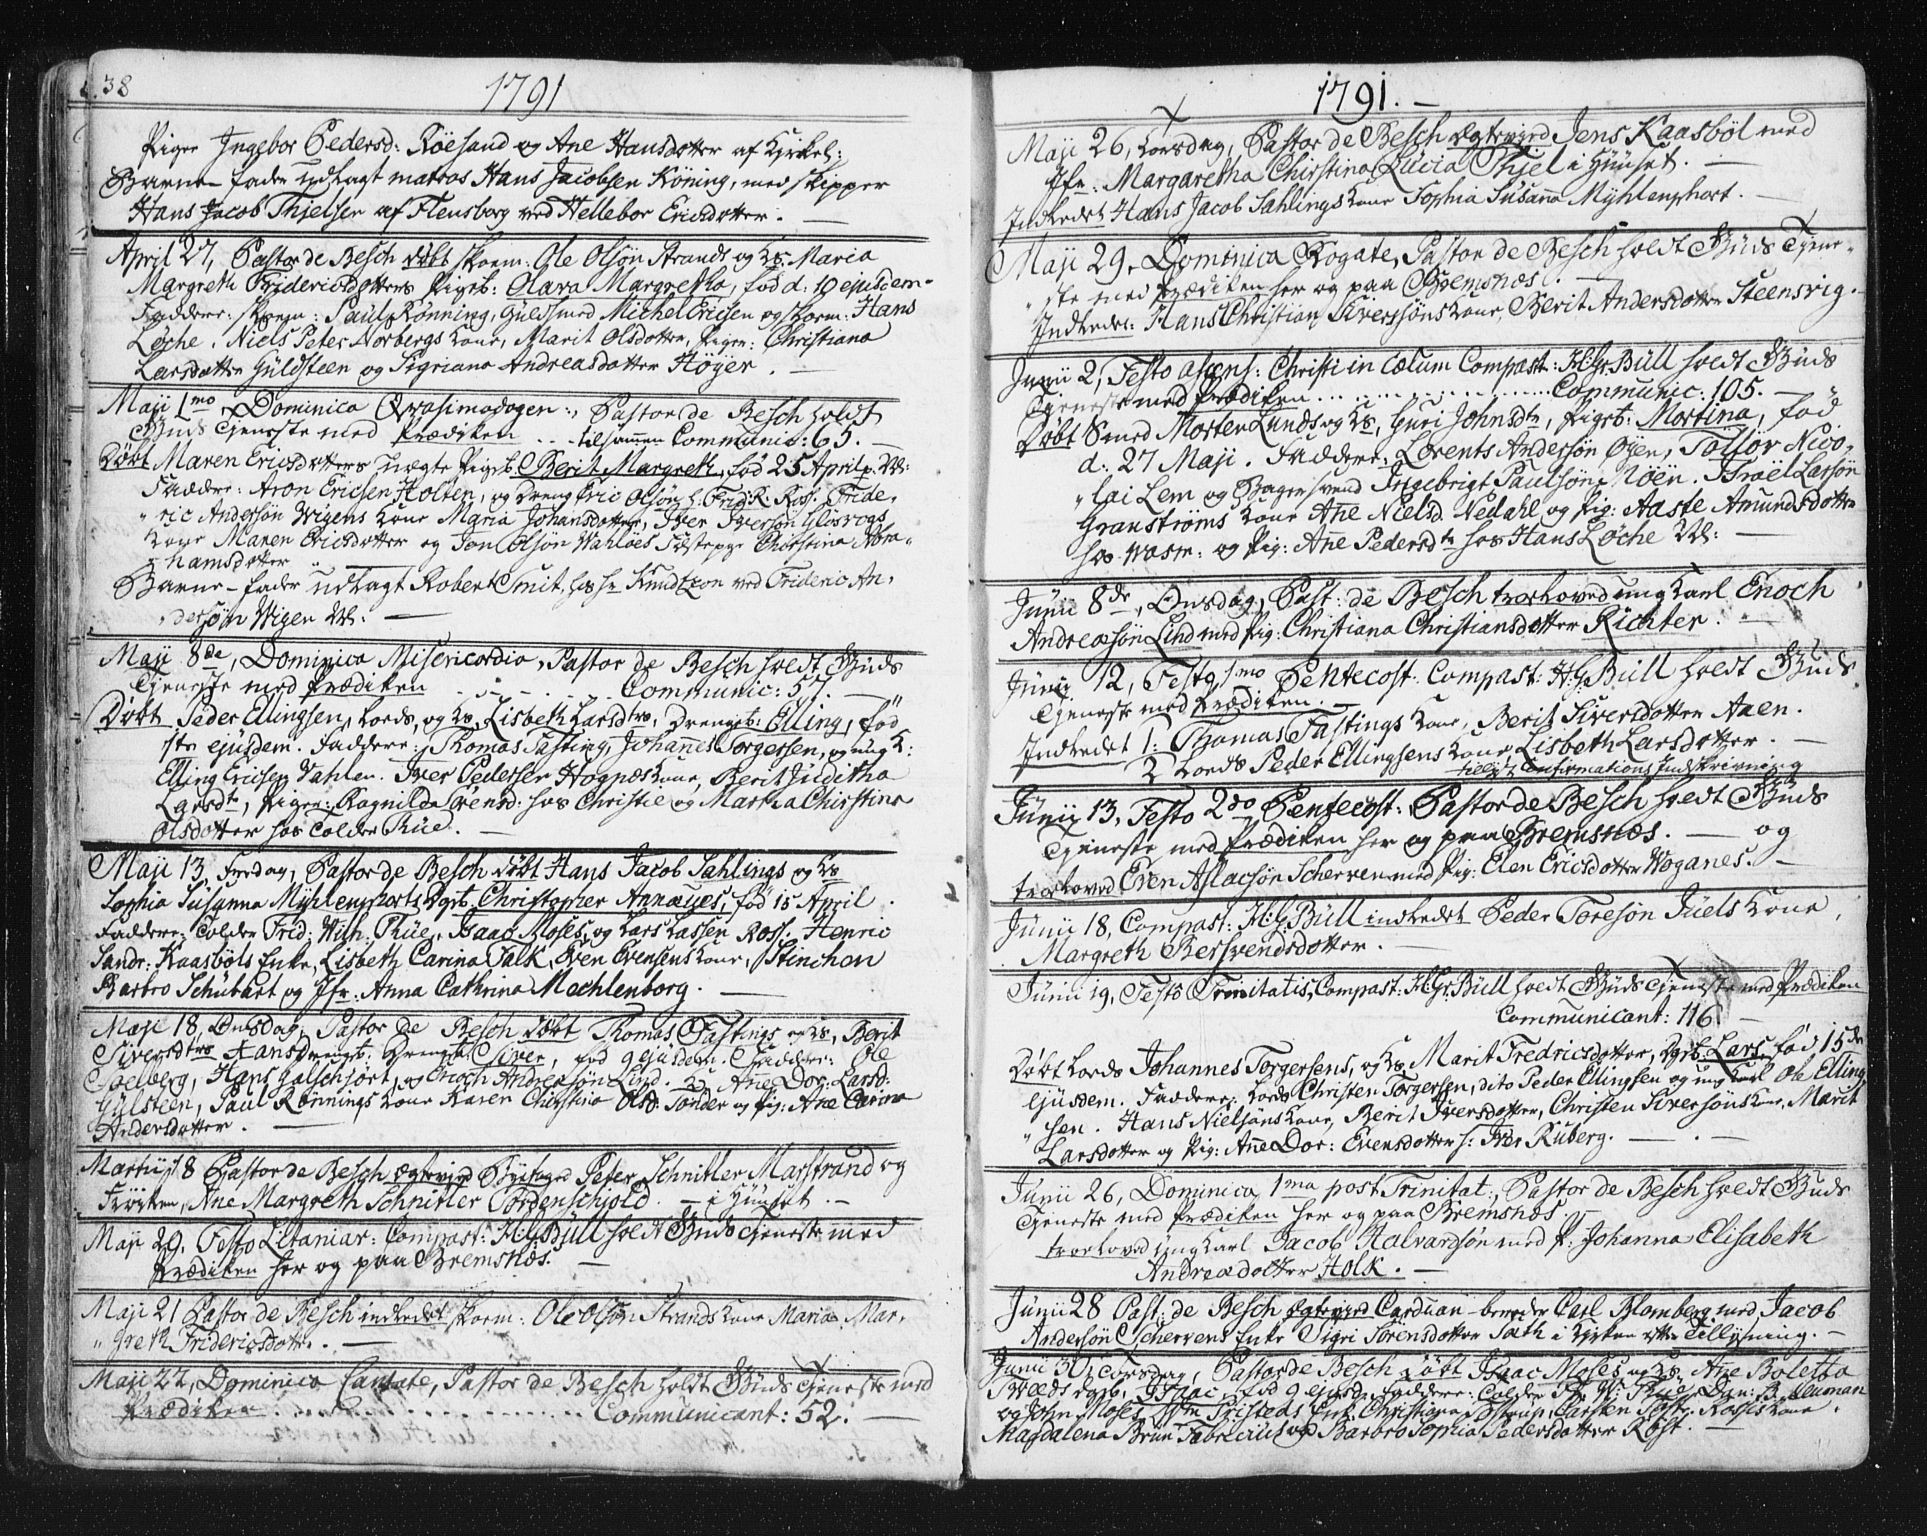 38
1791
Piger Ingebor Pedersd: Röesand og Ane Hansdotter af Kirkel:
Barne-fader udlagt matros Hans Jacobsen Köning, med skipper
Hans Jacob Thjelsen af Flensborg ved Hellebor Ericsdotter.
April 27, Pastor de Besch döbt Skoem: Ole Olsön Strands og Hs: Maria
Margreth Fridericsdotters Pigeb: Olava Margretha, föd d: 19 ejusdem
Faddere: Skoem: Paul Rönning, Guldsmed Michel Ericsen og Skoem: Hans
Löche. Niels Peter Norbergs Kone, Marit Olsdotter, Piger: Christiana
Larsdotter Güldsteen og Sigriana Andreasdotter Höyer.
Maji 1mo, Dominica Qvasimodogen:, Pastor de Besch holdt
Guds Tjeneste med Prædiken ... tilsammen Communic: 65.
Döbt Maren Ericsdotters uægte Pigeb: Berit Margreth, föd 25 April p. M:
Faddere: Aron Ericsen Holten, og Dreng Eric Olsön h. Fridr. Ross. Fride-
ric Andersön Wigens Kone Maria Johansdotter, Iver Iversön Glösvogs
Kone Maren Ericsdotter og Jon Olsön Wahlöes Söstepge Christina Abra-
hamsdotter
Barne-fader udlagt Robert Smit, hos Hr Knudtzon ved Frideric An-
dersön Wigen M:
Maji 8de, Dominica Misericordia, Pastor de Besch holdt Guds
Tjeneste med Prædiken ..... Communic: 57.
Döbt Peder Ellingsen, Lords, og Hs, Lisbeth Larsdtrs, Drengeb: Elling, föd
1ste ejusdem. Faddere: Thomas Fasting, Johannes Torgersen, og ung K:
Elling Ericsen Vahlen. Iver Pedersen Hognæs Kone, Berit Juditha
Larsdtr, Piger: Ragnilda Sörensd: hos Christie og Martha Christina
Olsdotter hos Tolder Rüe.
Maji 13, Fredag, Pastor de Besch döbt Hans Jacob Sahlings og Hs
Sophia Susanna Myhlenphorts Dgb Christopher Annæus, föd 15 April.
Faddere: Tolder Frid: Wilh. Rüe, Isaac Moses, og Lars Lassen Ross. Henric
Sandr: Kaasböls Enke, Lisbeth Carina Falk, Even Evensens Kone, Stinchen
Barbro Schubart og Jfr: Anna Cathrina Mechlenborg.
Maji 18, Onsdag, Pastor de Besch döbt Thomas Fastings og Hs, Berit
Siversdtrs Drengeb: Siver, föd 9 ejusdem. Faddere: Ole
Soelberg, Hans Galschjört, og Enoch Andreasön Lind. Ane Dor: Larsd:
Gülsteen, Paul Rönnings Kone Karen Christina Olsd: Sonder og Pig: Ane Carina
Andersdotter.
Martii 18 Pastor de Besch Ægteviede Byefoged Peter Schnitler Marstrand og
Fröken, Ane Margreth Schnitler Tordenschjold. - i Huuset.
Maji 20, Festo Litaniar: Compast: H: G: Büll holdt Guds Tjeneste med
Prædiken her og paa Bremsnæs.
Maji 21 Pastor de Besch indledet Skoem: Ole Olsön Strands Kone Maria Mar-
greth Fridericsdotter.
Maji 22, Dominica Cantate, Pastor de Besch holdt Guds Tjeneste med
Prædiken ..... Communicant: 52.
1791.
Maji 26, Torsdag, Pastor de Besch Ægteviede Jens Kaasböl med
Jfr: Margaretha Christina Lucia Thjel i Huuset.
Indledet Hans Jacob Sahlings Kone Sophia Susanna Myhlenphort.
Maji 29, Dominica Rogate, Pastor de Besch holdt Guds Tjene-
ste med Prædiken her og paa Bremsnæs.
Indledet: Hans Christian Siversöns Kone, Berit Andersdotter Steensvig.
Junii 2, Festo Ascens: Christi in Cælum Compast: H: Gr: Büll holdt Guds
Tjeneste med Prædiken ..... Communic: 105.
Döbt Smed Morten Lunds og Hs, Guri Johnsdtr, Pigeb: Mortina, föd
d: 27 Maji. Faddere: Lorents Andersön Öyen, Tollor Nico-
lai Lem og Bagersvend Ingebrigt Paulsön Möen. Israel Larsön
Granströms Kone Ane Nielsd. Nedahl og Pig: Aaste Amundsdotter
hos Wasm: og Pig: Ane Pedersdtr hos Hans Löche M:
Junii 8de, Onsdag, Past: de Besch troelovede ung Karl Enoch
Andreasön Lind med Pig: Christiana Christiansdotter Richter.
Junii 12, Festo 1mo Pentecost: Compast: H: G: Büll holdt Guds
Tjeneste med Prædiken.
Indledet 1: Thomas Fastings Kone, Berit Siversdotter Aaen.
2 Lords Peder Ellingsens Kone Lisbeth Larsdotter.
tillyst Confirmations Indskrivning
Junii 13, Festo 2do Pentecost: Pastor de Besch holdt Guds
Tjeneste med Prædiken her og paa Bremsnæs. - og
troelovede Even Aslacsön Scherven med Pig: Elen Ericsdotter Woganes.
Junii 18, Compast: H: G: Büll indledet Peder Toresön Juels Kone,
Margreth Bersvendsdotter.
Junii 19, Festo Trinitatis, Compast: H: Gr: Büll holdt Guds Tjeneste med Prædiken
Communicant: 116.
Döbt Lords Johannes Torgersens, og Hs. Marit Fredricsdotter, Dgb. Lars, föd 15de
ejusdem. Faddere: Lords Christen Torgersen, dito Peder Ellingsen og ung Karl Ole Elling-
sen. Hans Nielsöns Kone, Berit Iversdotter, Christen Siversöns Kone, Marit
Larsdotter og Pig: Ane Dor: Evensdotter h: Iver Ruberg.
Junii 26, Dominica 1ma post Trinitat:, Pastor de Besch holdt Guds
Tjeneste med Prædiken her og paa Bremsnæs
troelovede ung Karl Jacob Halvardsön med P: Johanna Elisabeth
Andreædotter Holk.
Junii 28 Past: de Besch Ægteviede Carduan-bereder Carl Blomberg med Jacob
Andersön Schervens Enke Sigri Sörensdotter Sæth i Kirken efter Tillysning.
Junii 30, Torsdag, Pastor de Besch döbt Isaac Moses og Hs. Ane Boletta
Dgb, Isaac, föd 9 ejusd. Faddere: Tolder Fr: W: Rüe, Dan: B: Neuman
og John Moses, Wm Fristeds Enk. Christiana Tostrup, Carsten Rosses Kone,
Magdalena Brun Fabricius og Barbro Sophia Pedersdotter Röst.